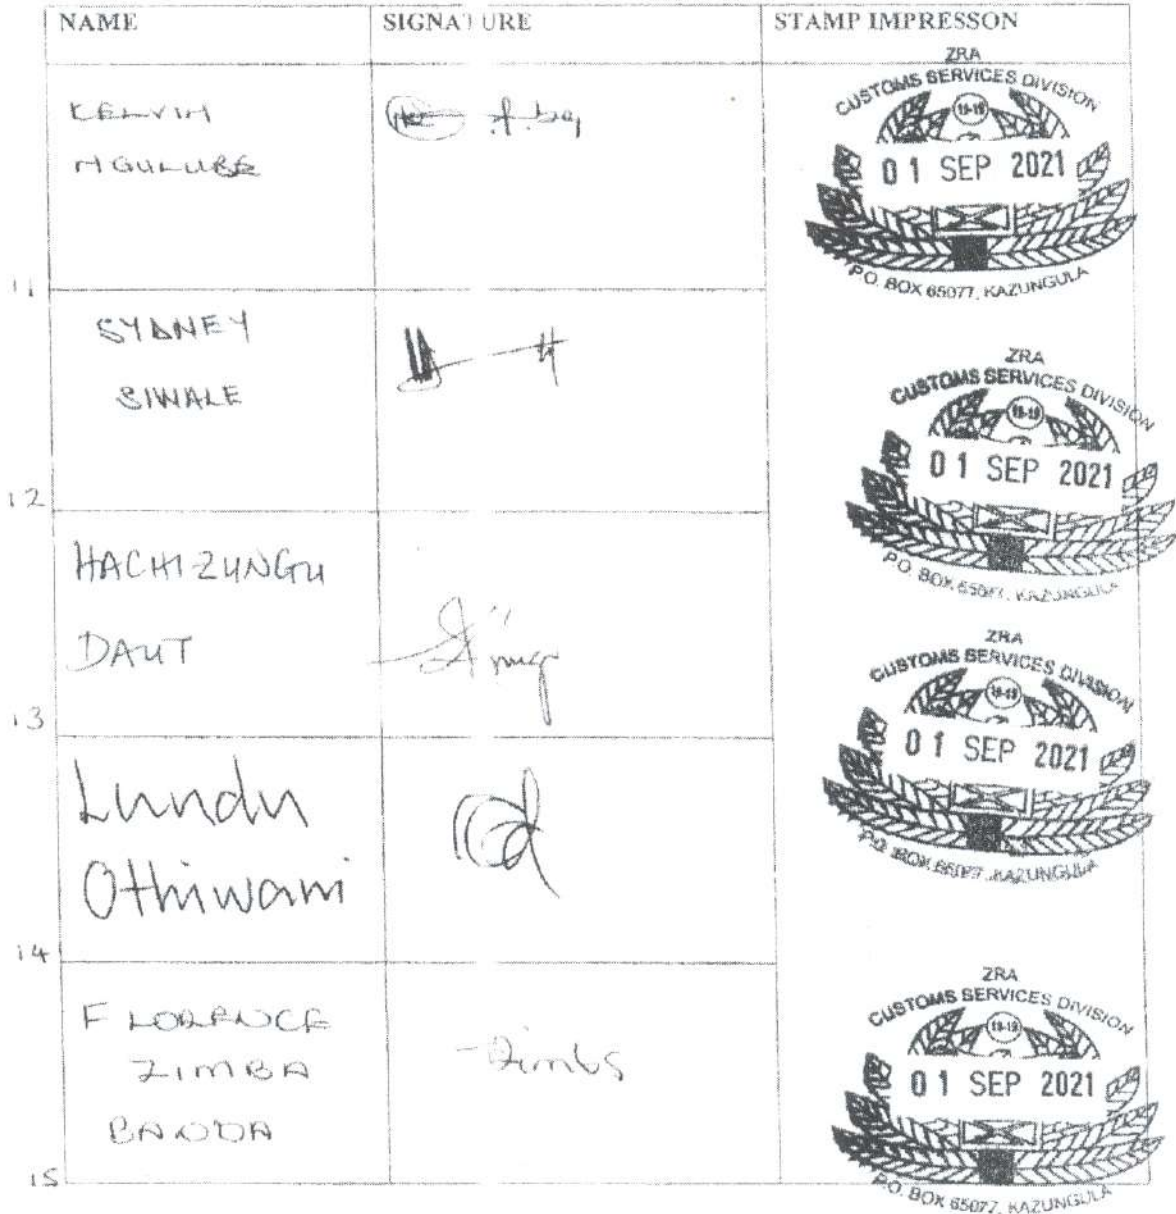 NAME SIGNATURE STAMP IMPRESSON
KELVIN
NGULUBE
ZRA
CUSTOMS SERVICES DIVISION
19-19
01 SEP 2021
P.O. BOX 65077, KAZUNGULA
11
SYDNEY
SIWALE
ZRA
CUSTOMS SERVICES DIVISION
19-19
01 SEP 2021
P.O. BOX 65077, KAZUNGULA
12
HACHIZUNGU
DAUT
ZRA
CUSTOMS SERVICES DIVISION
19-19
01 SEP 2021
P.O. BOX 65077, KAZUNGULA
13
Lundu
Othiwani
14
FLORENCE
ZIMBA
BANDA
Zimba
ZRA
CUSTOMS SERVICES DIVISION
19-19
01 SEP 2021
P.O. BOX 65077, KAZUNGULA
15